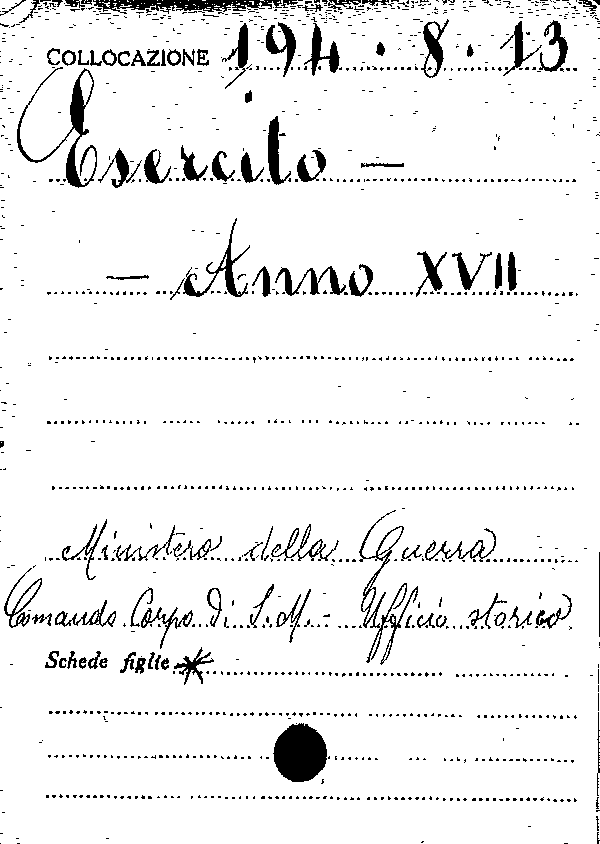 COLLOCAZIONE 194 . 8 . 13
Esercito —
— Anno XVII
Ministero della Guerra
Comando Corpo Di S.M. - Ufficio storico
Schede figlie *